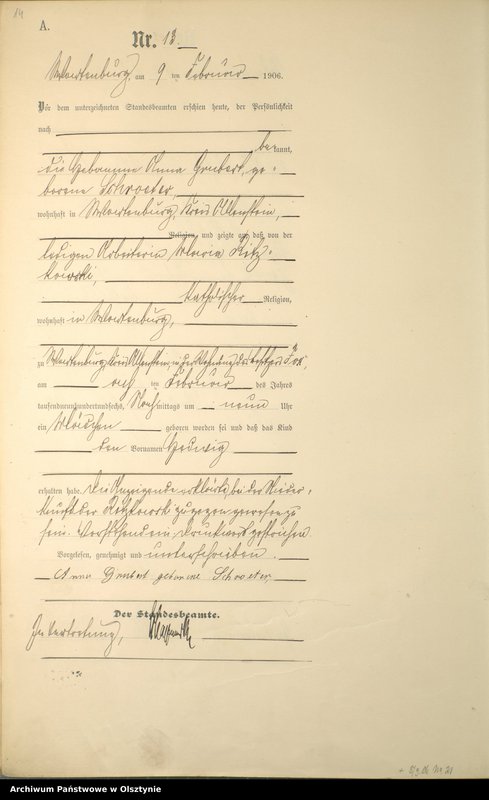 14
A.
Nr. 13
Wartenburg, am 9 ten Februar 1906.
Vor dem unterzeichneten Standesbeamten erschien heute, der Persönlichkeit
nach
bekannt,
die Hebamme Anna Grabert, ge-
borene Schroeter,
wohnhaft in Wartenburg, Kreis Allenstein,
Religion, und zeigte an, daß von der
ledigen Arbeiterin Maria
katholischer Religion,
wohnhaft in Wartenburg,
zu Wartenburg, Kreis Allenstein, in der Wohnung des
am acht ten Februar des Jahres
tausendneunhundertundsechs, Nachmittags um neun Uhr
ein Mädchen geboren worden sei und daß das Kind
den Vornamen Hedwig
erhalten habe. Die Anzeigende erklärte, bei der Nieder-
kunft der zugegen gewesen zu
sein. Vorstehend ein Druckwort gestrichen.
Vorgelesen, genehmigt und unterschrieben.
Anna geborene Schroeter,
Der Standesbeamte.
In Vertretung,
Archiwum Państwowe w Olsztynie